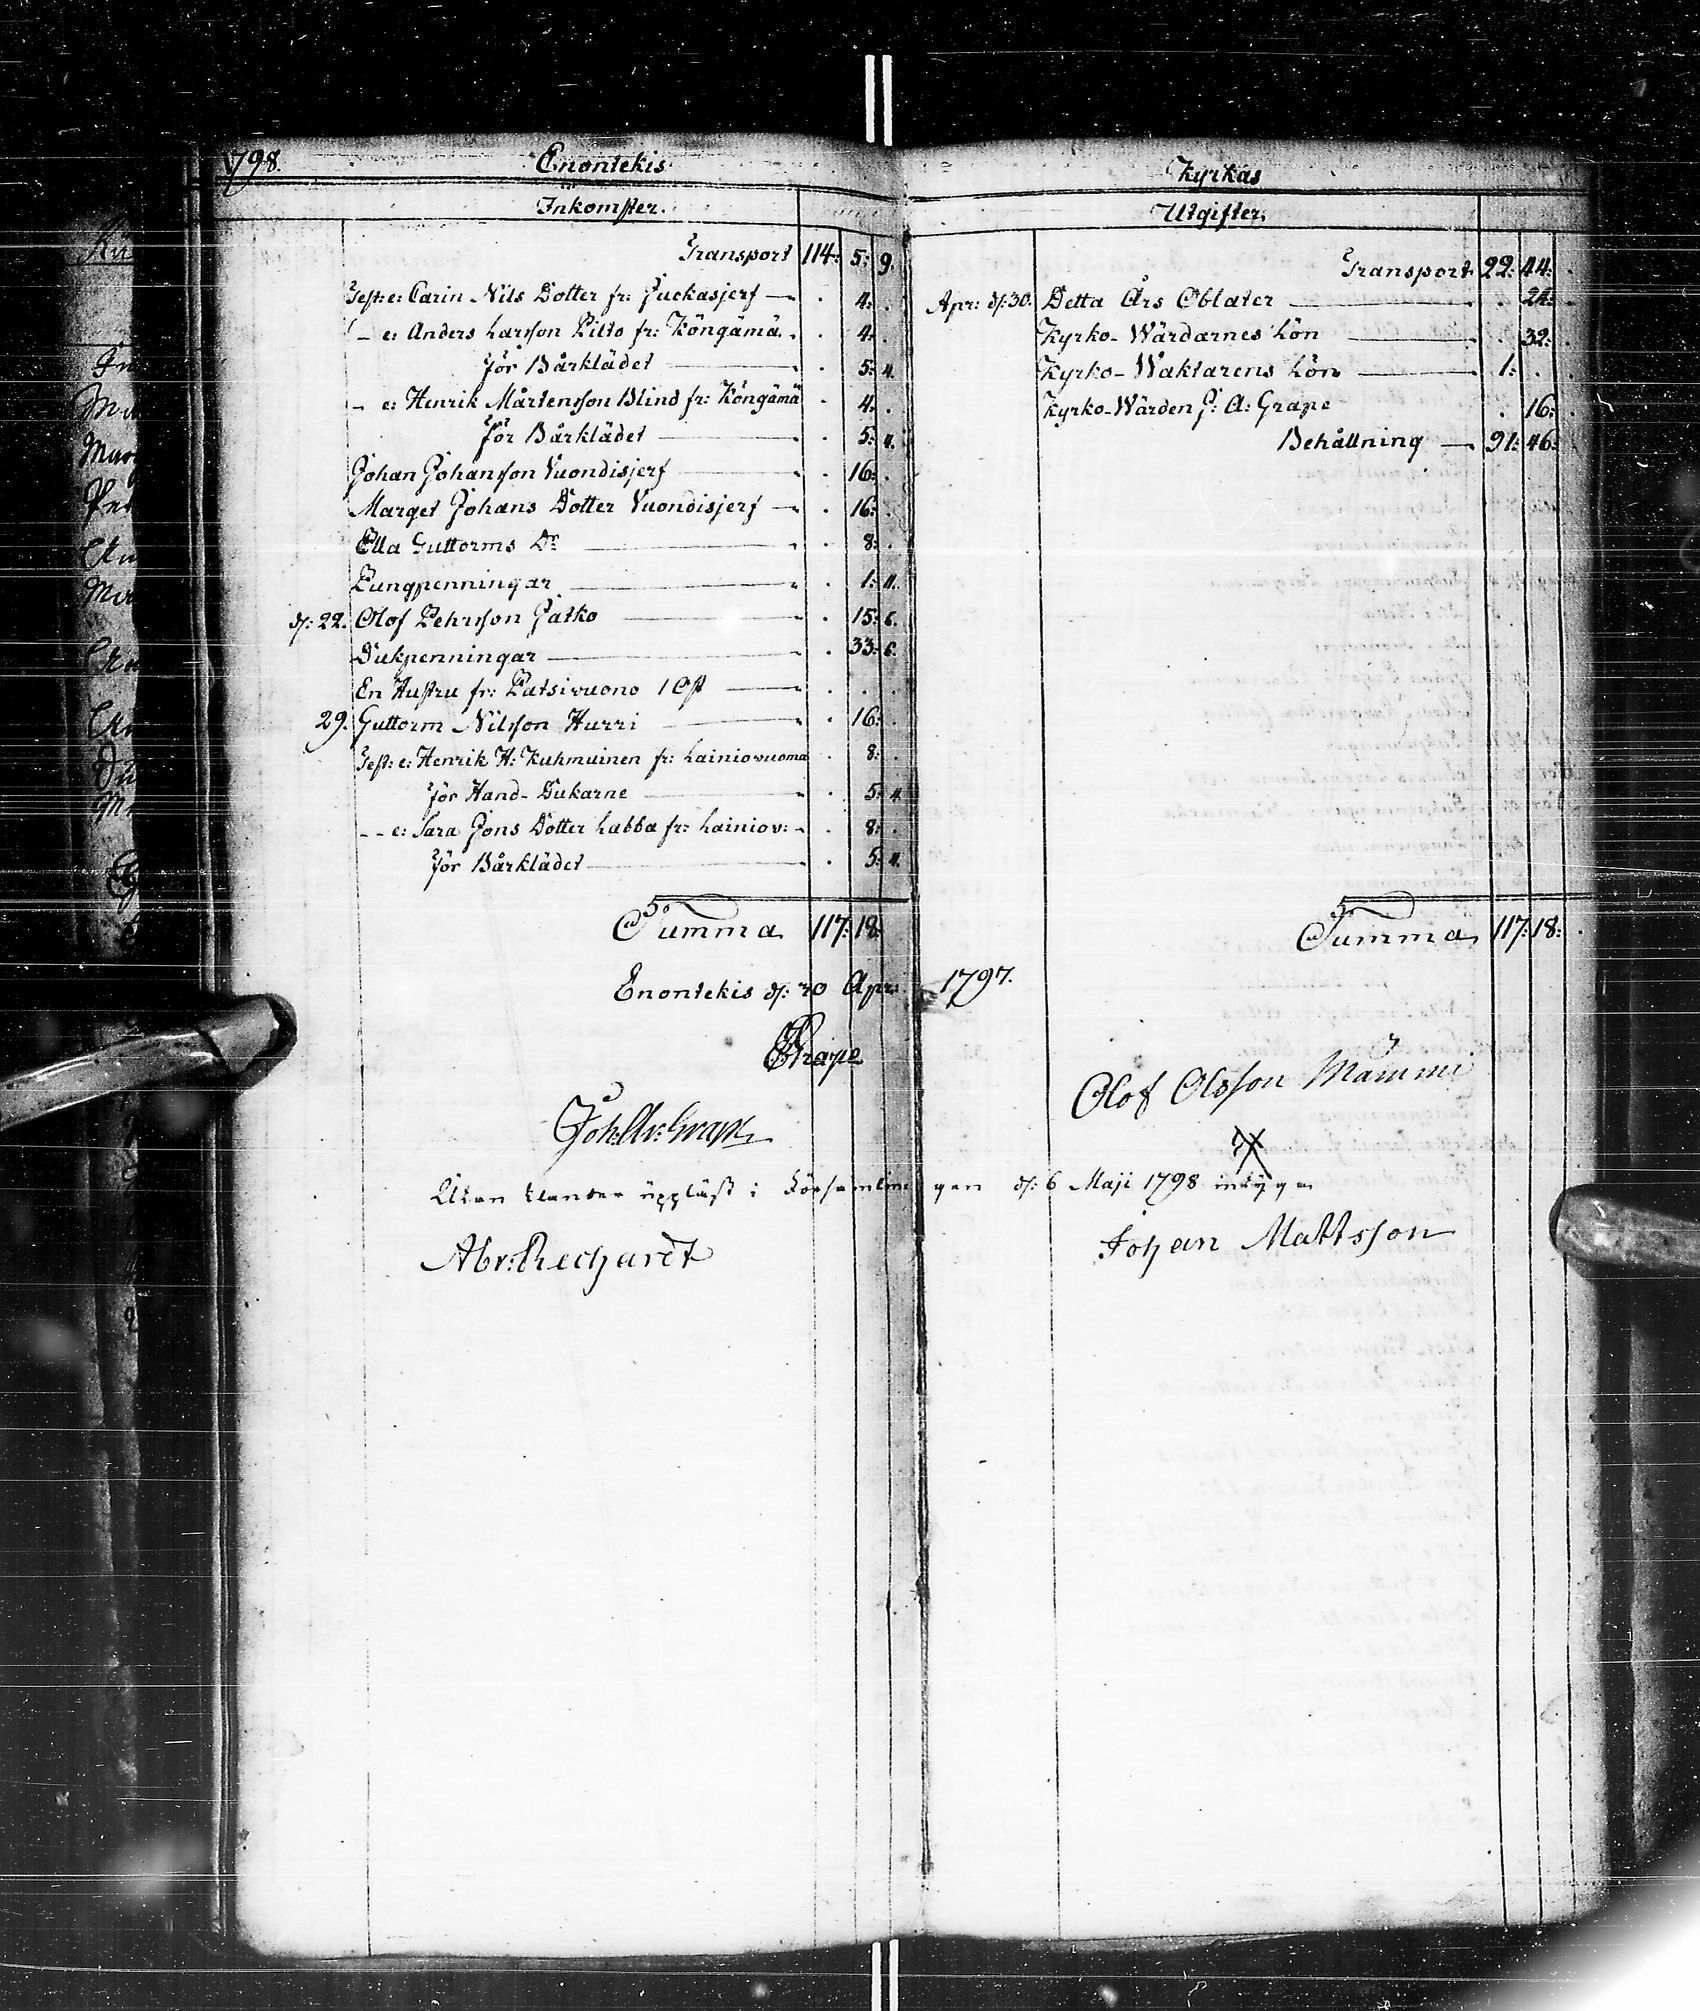 1798. Enontekis
Inkomster.
Transport 114: 5: 9.
Test: e: Carin Nils Dotter fr: Juckasjerf — . 4: .
— e: Anders Larsson Pilto fr: Köngämä . . 4: .
För Bårklädet — . 5: 4.
— e: Henrik Mårtensson Blind fr: Köngämä . 4: .
För Bårklädet — . 5: 4.
Johan Johansson Vuondisjerf — . 16: .
Marget Johans Dotter Vuondisjerf — . 16: .
Ella Guttorms Dr — . 8: .
Pungpenningar — . 1: 11.
d: 22. Olof Pehrsson Patko — . 15: 6.
Dukpenningar — . 33: 6.
En Hustru fr: Patsivuono 1 Ost — . . .
29. Guttorm Nilsson Hurri — . 16: .
Test: e: Henrik H: Kuhmuinen fr: Lainiovuoma . 8: .
För Hand-Dukarne — . 5: 4.
— — e: Sara Jons Dotter Labba fr: Lainiov: — . 8: .
För Bårklädet — . 5: 4.
Summa 117: 18:
Kyrkas
Utgifter.
Transport 22: 44: .
Apr: d: 30. Detta Års Oblater — . 24: .
Kyrko-Wärdarnes Lön — . 32: .
Kyrko-Waktarens Lön — 1: . .
Kyrko-Wärden J: A: Grape . 16: .
Behållning — 91: 46:
Summa 117: 18: .
Enontekis d: 30 Apr: 1797.
EGrape
Olof Olsson Mämmi
Joh: Ar: Grape
Utan klander uppläst i Församlingen d: 6 Maji 1798 intyga
Abr: Rechardt
Johan Mattsson